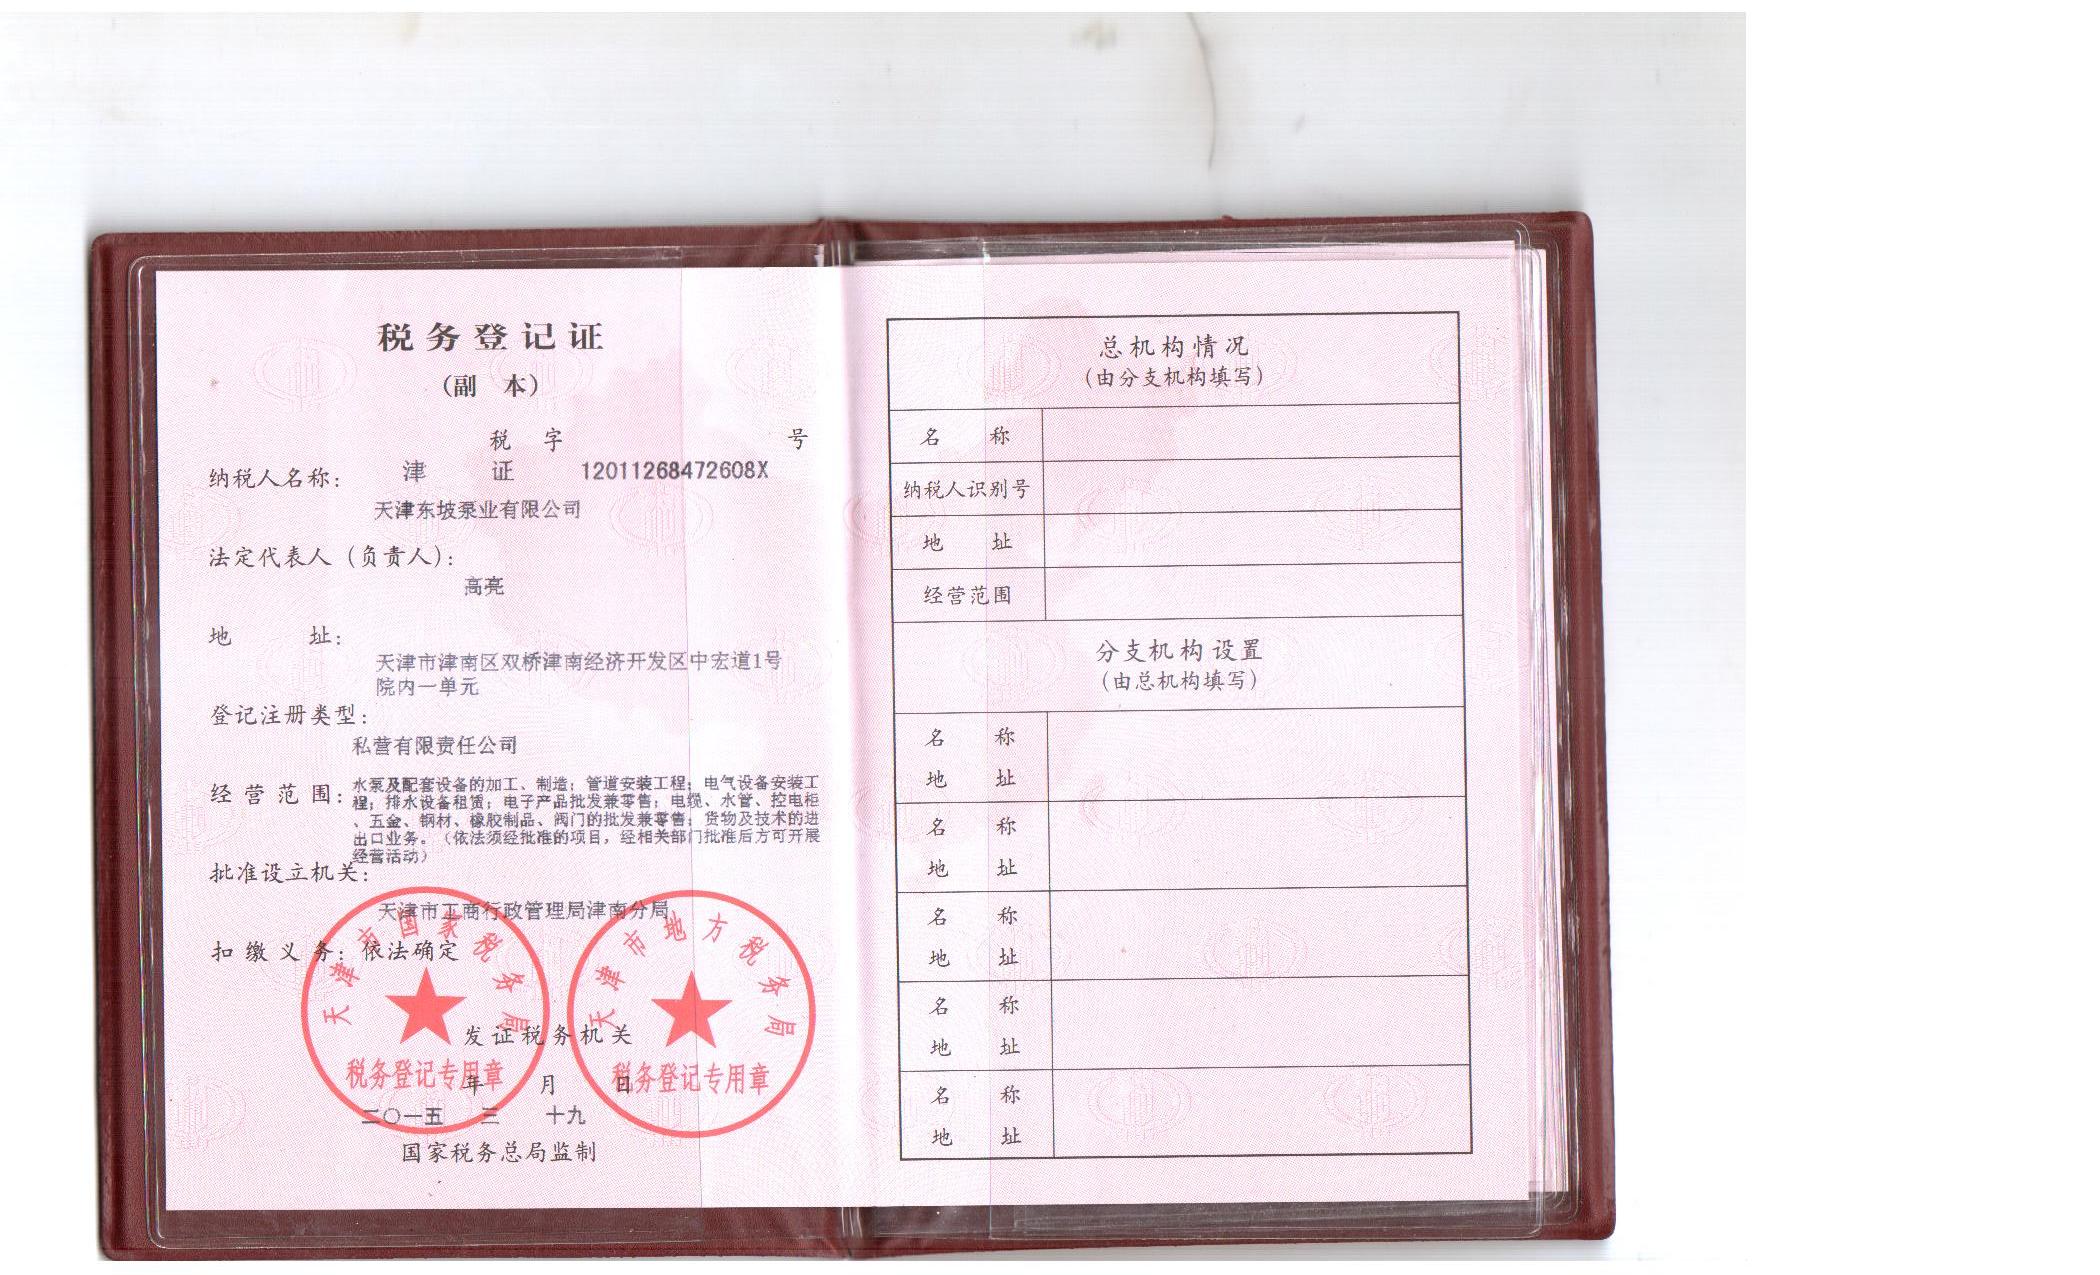 税务登记证
(副 本)
税 字 号
津 证 12011268472608X
纳税人名称:
天津东坡泵业有限公司
法定代表人(负责人):
高亮
地 址:
天津市津南区双桥津南经济开发区中宏道1号
院内一单元
登记注册类型:
私营有限责任公司
经营范围:
水泵及配套设备的加工、制造;管道安装工程;电气设备安装工
程;排水设备租赁;电子产品批发兼零售;电缆、水管、控电柜
、五金、钢材、橡胶制品、阀门的批发兼零售;货物及技术的进
出口业务。(依法须经批准的项目,经相关部门批准后方可开展
经营活动)
批准设立机关:
天津市工商行政管理局津南分局
扣缴义务:依法确定
天津市国家税务局
税务登记专用章
天津市地方税务局
税务登记专用章
发证税务机关
年 月 日
二〇一五 三 十九
国家税务总局监制
总机构情况
(由分支机构填写)
名 称
纳税人识别号
地 址
经营范围
分支机构设置
(由总机构填写)
名 称
地 址
名 称
地 址
名 称
地 址
名 称
地 址
名 称
地 址